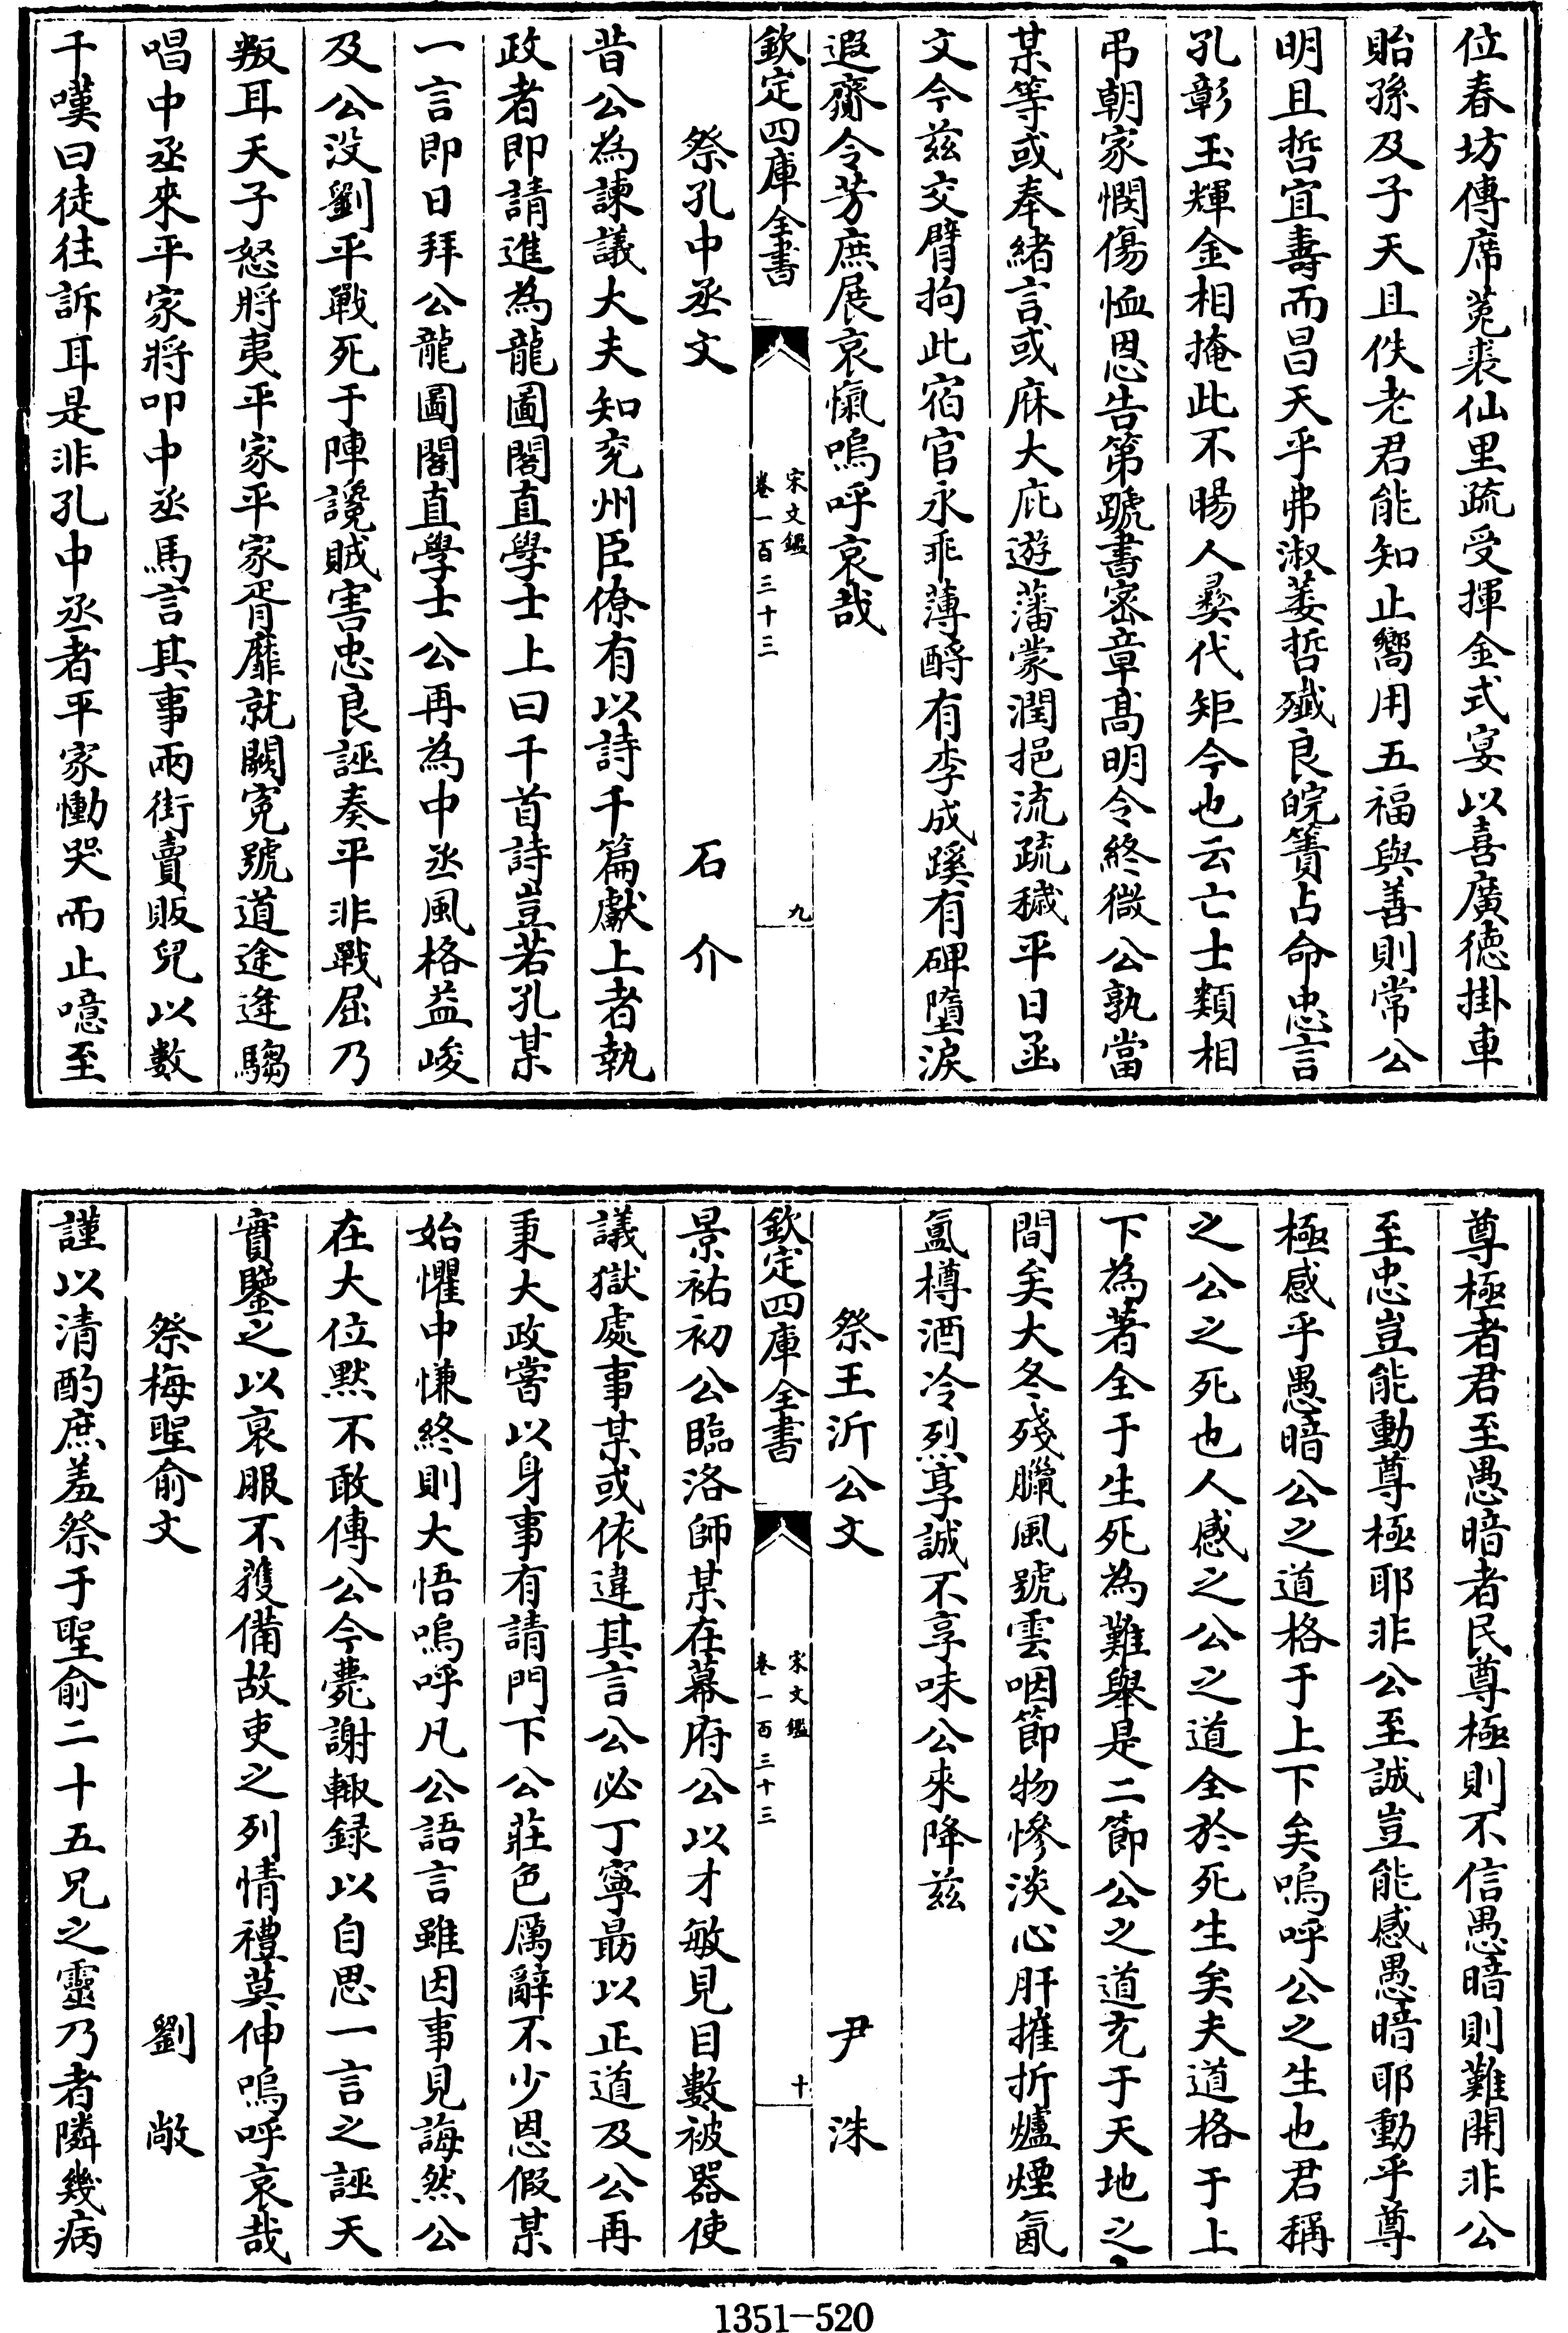 位春坊傅席菟裘仙里疏受揮金式宴以喜廣徳掛車
貽孫及子天且佚老君能知止嚮用五福與善則常公
明且哲宜壽而昌天乎弗淑萎哲殲良皖簀占命忠言
孔彰玉輝金相掩此不暘人彛代矩今也云亡士類相
弔朝家憫傷恤恩告第踬書密章髙明令終微公孰當
某等或奉緒言或庥大庇遊藩蒙潤挹流疏穢平日函
文今兹交臂拘此宿官永乖薄酹有李成蹊有碑墮淚
遐齎令芳庶展哀愾嗚呼哀哉
欽定四庫全書
宋文鑑
卷一百三十三
九
祭孔中丞文 石介
昔公為諫議大夫知兖州臣僚有以詩千篇獻上者執
政者即請進為龍圖閣直學士上曰千首詩豈若孔某
一言即日拜公龍圖閣直學士公再為中丞風格益峻
及公没劉平戰死于陣讒賊害忠良誣奏平非戰屈乃
叛耳天子怒將夷平家平家胥靡就闕寃號道途逢騶
唱中丞來平家將叩中丞馬言其事兩街賣販兒以數
千嘆曰徒往訴耳是非孔中丞者平家慟哭而止噫至
尊極者君至愚暗者民尊極則不信愚暗則難開非公
至忠豈能動尊極耶非公至誠豈能感愚暗耶動乎尊
極感乎愚暗公之道格于上下矣嗚呼公之生也君稱
之公之死也人感之公之道全於死生矣夫道格于上
下為著全于生死為難舉是二節公之道充于天地之
間矣大冬殘臘風號雲咽節物慘淡心肝摧折爐煙氤
氲樽酒冷烈享誠不享味公來降兹
祭王沂公文 尹洙
欽定四庫全書
宋文鑑
卷一百三十三
十
景祐初公臨洛師某在幕府公以才敏見目數被器使
議獄處事某或依違其言公必丁寧最以正道及公再
秉大政嘗以身事有請門下公莊色厲辭不少恩假某
始懼中慊終則大悟嗚呼凡公語言雖因事見誨然公
在大位黙不敢傳公今薨謝輙録以自思一言之誣天
實鑒之以衰服不獲備故吏之列情禮莫伸嗚呼哀哉
祭梅聖俞文 劉敞
謹以清酌庶羞祭于聖俞二十五兄之靈乃者隣幾病
1351-520